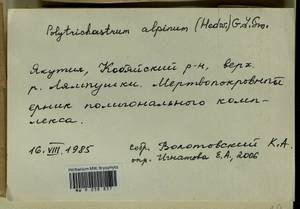 Polytrichastrum alpinum (Hedw.) G.L.Sm.
Якутия, Кобяйский р-н, верх.
р. Лямпушки. Мертвопокровный
ерник полигонального комп-
лекса.
16.VIII.1985 собр. Волотовский К.А.
опр. Игнатова Е.А., 2006
Herbarium MW, Bryophyta